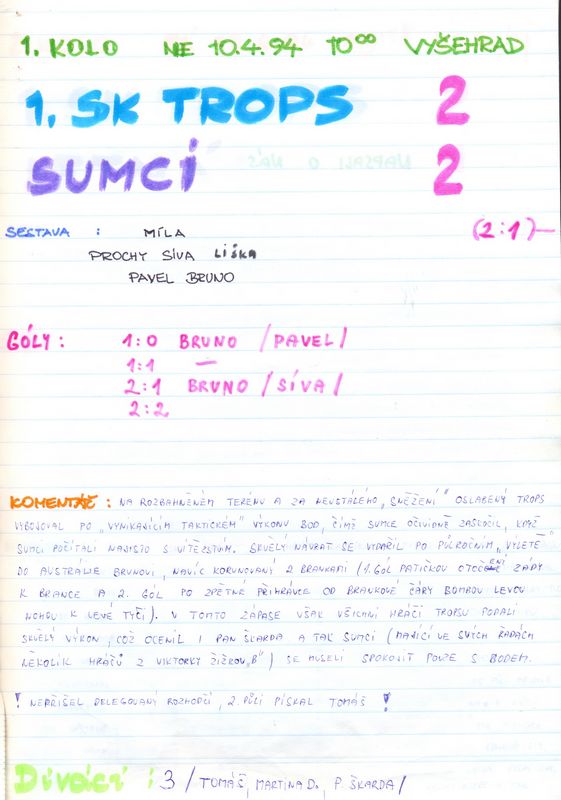 1. KOLO NE 10.4.94 10⁰⁰ VYŠEHRAD
1. SK TROPS 2
SUMCI 2
SESTAVA : MÍLA (2:1)
PROCHY SÍVA LIŠKA
PAVEL BRUNO
GÓLY : 1:0 BRUNO /PAVEL/
1:1 —
2:1 BRUNO /SÍVA/
2:2
KOMENTÁŘ : NA ROZBAHNĚNÉM TERÉNU A ZA NEUSTÁLÉHO „SNĚŽENÍ" OSLABENÝ TROPS
VYBOJOVAL PO „VYNIKAJÍCÍM TAKTICKÉM" VÝKONU BOD, ČÍMŽ SUMCE OČIVIDNĚ ZASKOČIL, KDYŽ
SUMCI POČÍTALI NAJISTO S VÍTĚZSTVÍM. SKVĚLÝ NÁVRAT SE VYDAŘIL PO PŮLROČNÍM „VÝLETĚ"
DO AUSTRÁLIE BRUNOVI, NAVÍC KORUNOVANÝ 2 BRANKAMI (1. GÓL PATIČKOU OTOČENÝ ZÁDY
K BRANCE A 2. GÓL PO ZPĚTNÉ PŘIHRÁVCE OD BRANKOVÉ ČÁRY BOMBOU LEVOU
NOHOU K LEVÉ TYČI). V TOMTO ZÁPASE VŠAK VŠICHNI HRÁČI TROPSU PODALI
SKVĚLÝ VÝKON, COŽ OCENIL I PAN ŠKARDA A TAK SUMCI (MAJÍCÍ VE SVÝCH ŘADÁCH
NĚKOLIK HRÁČŮ Z VIKTORKY ŽIŽKOV „B") SE MUSELI SPOKOJIT POUZE S BODEM.
! NEPŘIŠEL DELEGOVANÝ ROZHODČÍ, 2. PŮLI PÍSKAL TOMÁŠ !
Diváci : 3 / TOMÁŠ, MARTINA D., P. ŠKARDA /